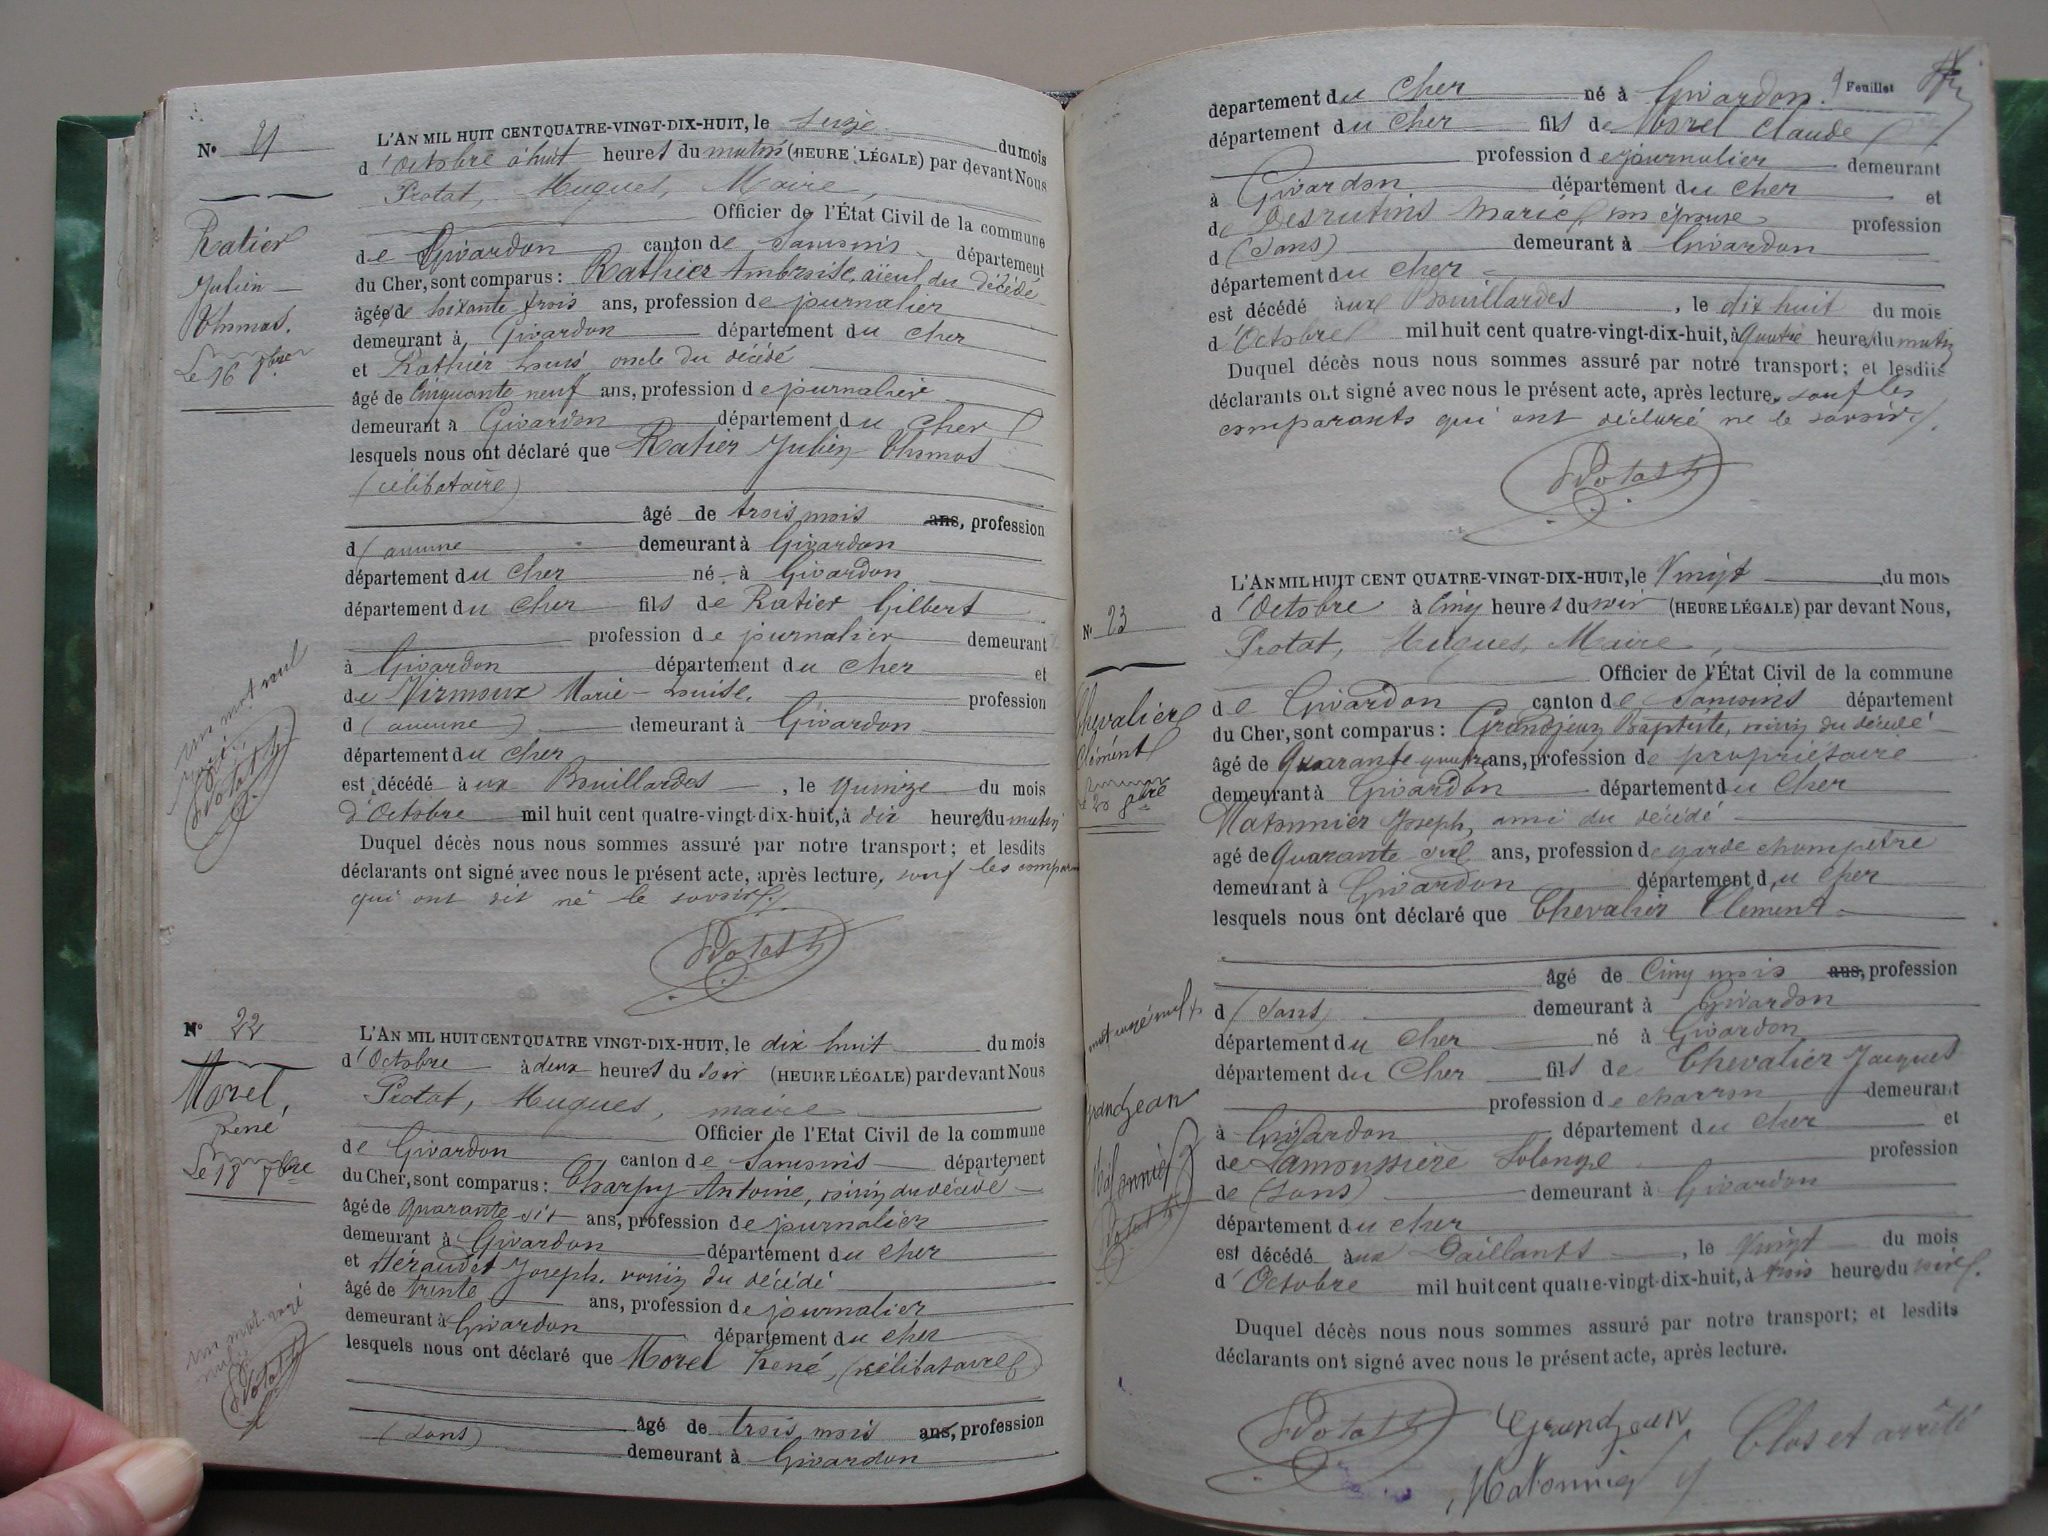 N° 21
Ratier
Julien
Thomas.
Le 16 8bre
un mot nul
rayé.
Protat H
L'AN MIL HUIT CENT QUATRE-VINGT-DIX-HUIT, le seize du mois
d'Octobre à huit heures du matin (HEURE LÉGALE) par devant Nous
Protat, Hugues, Maire,
Officier de l'État Civil de la commune
de Givardon canton de Sancoins département
du Cher, sont comparus : Rathier Ambroise, aïeul du décédé
âgée de soixante trois ans, profession de journalier
demeurant à Givardon département du Cher
et Rathier Louis oncle du décédé
âgé de Cinquante neuf ans, profession de journalier
demeurant à Givardon département du Cher
lesquels nous ont déclaré que Ratier Julien Thomas
(célibataire)
âgé de trois mois ans, profession
d (aucune demeurant à Givardon
département du Cher né à Givardon
département du Cher fils de Ratier Gilbert
profession de journalier demeurant
à Givardon département du Cher et
de Virmoux Marie-Louise, profession
d (aucune) demeurant à Givardon
département du Cher
est décédé aux Bouillardes, le quinze du mois
d'Octobre mil huit cent quatre-vingt-dix-huit, à dix heures du matin
Duquel décès nous nous sommes assuré par notre transport; et lesdits
déclarants ont signé avec nous le présent acte, après lecture, sauf les compar
qui ont dit né le savoir.
Protat H
N° 22
Morel,
René
Le 18 8bre
un mot rayé
nul.
Protat H
L'AN MIL HUIT CENT QUATRE VINGT-DIX-HUIT, le dix huit du mois
d'Octobre à deux heures du soir (HEURE LÉGALE) par devant Nous
Protat, Hugues, maire
Officier de l'Etat Civil de la commune
de Givardon canton de Sancoins département
du Cher, sont comparus : Charpy Antoine, voisin du décédé
âgé de quarante-six ans, profession de journalier
demeurant à Givardon département du Cher
et Héraudet Joseph, voisin du décédé
âgé de trente ans, profession de journalier
demeurant à Givardon département du Cher
lesquels nous ont déclaré que Morel René, (célibataire)
âgé de trois mois ans, profession
(sans) demeurant à Givardon
9 Feuillet
département du Cher né à Givardon.
département du Cher fils de Morel Claude
profession de journalier demeurant
à Givardon département du Cher et
de Desrutins Marie son épouse profession
d (sans) demeurant à Givardon
département du Cher
est décédé aux Bouillardes, le dix huit du mois
d'Octobre mil huit cent quatre-vingt-dix-huit, à quatre heures du matin
Duquel décès nous nous sommes assuré par notre transport; et lesdits
déclarants ont signé avec nous le présent acte, après lecture, sauf les
comparants qui ont déclaré ne le savoir.
Protat H
N° 23
Chevalier
Clément
Le 20 8bre
mot rayé nul
Grandjean
Matonnier
Protat H
L'AN MIL HUIT CENT QUATRE-VINGT-DIX-HUIT, le Vingt du mois
d'Octobre à Cinq heures du soir (HEURE LÉGALE) par devant Nous,
Protat, Hugues, Maire,
Officier de l'État Civil de la commune
de Givardon canton de Sancoins département
du Cher, sont comparus : Grandjean Baptiste, voisin du décédé
âgé de Quarante-quatre ans, profession de propriétaire
demeurant à Givardon département du Cher
Matonnier Joseph, ami du décédé
agé de Quarante-six ans, profession de garde champêtre
demeurant à Givardon département du Cher
lesquels nous ont déclaré que Chevalier Clément
âgé de Cinq mois ans, profession
d (sans) demeurant à Givardon
département du Cher né à Givardon
département du Cher fils de Chevalier Jacques
profession de charron demeurant
à Givardon département du Cher et
de Lamoussière Solange profession
de (sans) demeurant à Givardon
département du Cher
est décédé aux Daillants, le Vingt du mois
d'Octobre mil huit cent quatre-vingt-dix-huit, à trois heures du soir.
Duquel décès nous nous sommes assuré par notre transport; et lesdits
déclarants ont signé avec nous le présent acte, après lecture.
Protat H Grandjean Clos et arrêté
Matonnier